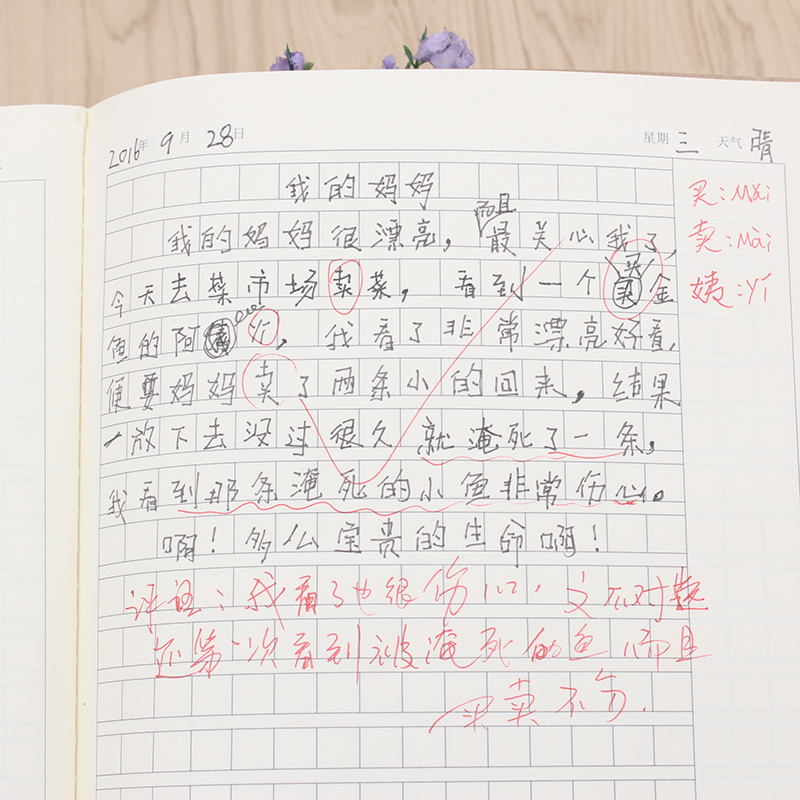 2016年 9月 28日 星期 三 天气 晴
我的妈妈
我的妈妈很漂亮，而且最关心我了，
今天去菜市场卖菜，看到一个买金
鱼的阿yi，我看了非常漂亮好看，
便要妈妈卖了两条小的回来，结果
一放下去没过很久就淹死了一条，
我看到那条淹死的小鱼非常伤心。
啊！多么宝贵的生命啊！
评语：我看了也很伤心，文不对题
还第一次看到被淹死的鱼，而且
买卖不分.
买：Mǎi
卖：Mài
姨：yí